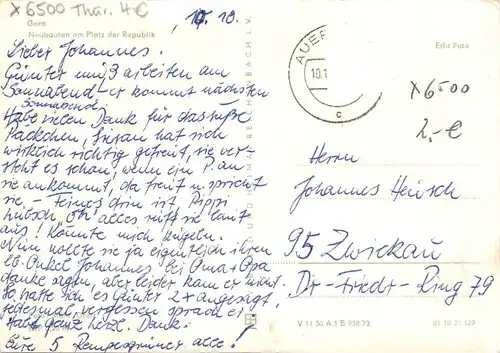 x6500 Thür. 4€
Gera
Neubauten am Platz der Republik
10.10.
Lieber Johannes!
Günter muß arbeiten am
Sonnabend - er kommt nächsten
Sonnabend!
Habe vielen Dank für das süße
Päckchen, hat sich
wirklich richtig gefreut, sie ver-
steht es schon, wenn ein P. an
sie ankommt, da freut u. spricht
sie. - ist Pippi
hübsch, oh alles ruft sie laut
aus! Könnte mich kugeln.
Nun wollte sie ja eigentlich ihrem
lb. Onkel Johannes bei Oma + Opa
danke sagen, aber leider kam er nicht.
So hatte ich es Günter 2x angesagt,
jedesmal vergessen sprach er!
Hab ganz herzl. Dank!
Eure 5 alle!
AUER
10.1
c
Echt Foto
x6500
2,-€
Herrn
Johannes Heusch
95 Zwickau
Dr.-Friedr.-Ring 79
V 11 50 A 1 B 956/73
01 10 21 129